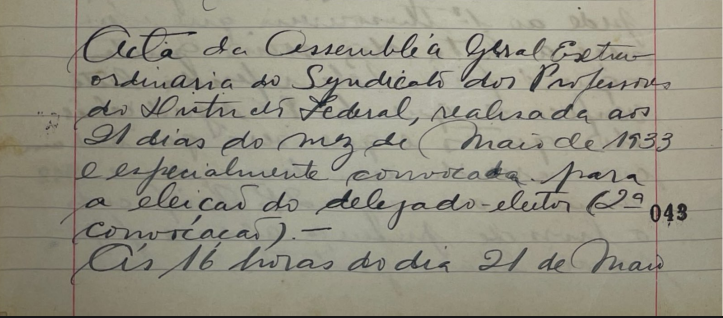 Acta da Assembléa Geral Extra-
ordinaria do Syndicato dos Professores
do Districto Federal, realisada aos
21 dias do mez de Maio de 1933
e especialmente convocada para
a eleição do delegado-eleitor (2ª
043
convocação). —
Ás 16 horas do dia 21 de Maio